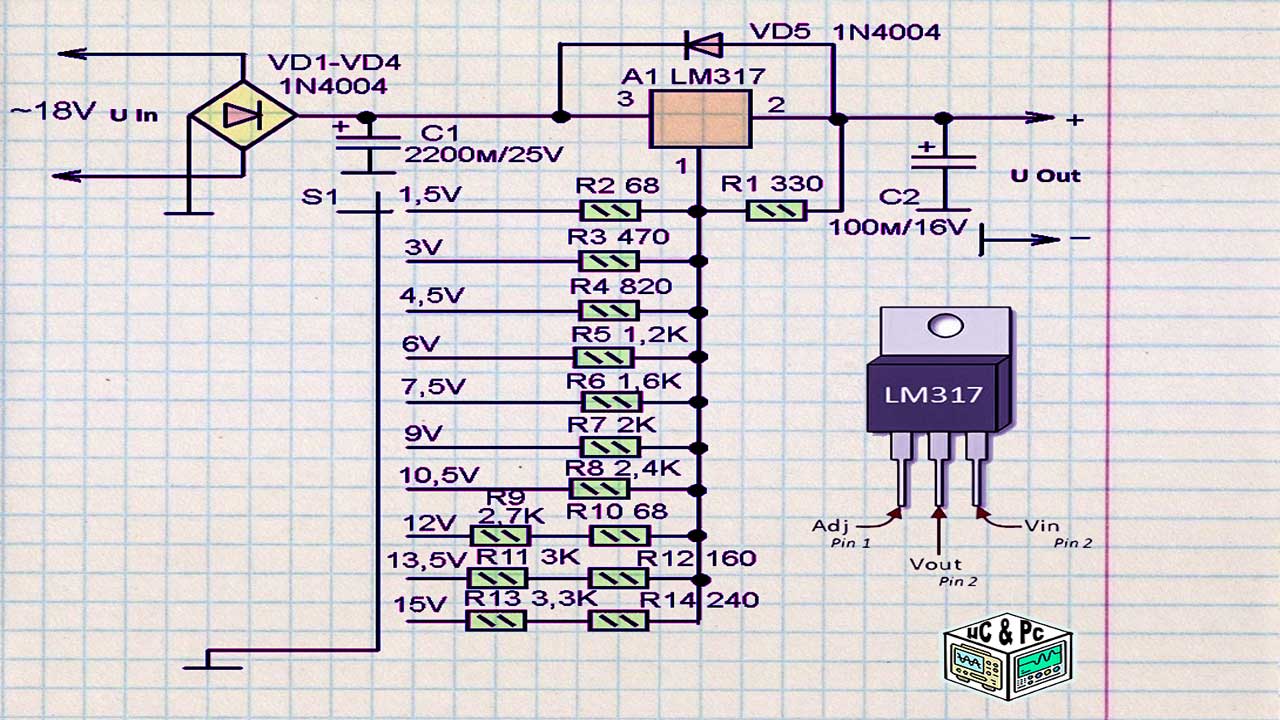 VD5 1N4004
VD1-VD4
1N4004
A1 LM317
~18V U In
3
2
1
+
C1
2200м/25V
+
+
U Out
C2
100м/16V
−
S1
1,5V
R2 68
R1 330
3V
R3 470
4,5V
R4 820
6V
R5 1,2K
7,5V
R6 1,6K
9V
R7 2K
10,5V
R8 2,4K
12V
R9
2,7K
R10 68
13,5V
R11 3K
R12 160
15V
R13 3,3K
R14 240
LM317
Adj
Pin 1
Vout
Pin 2
Vin
Pin 2
µC & Pc